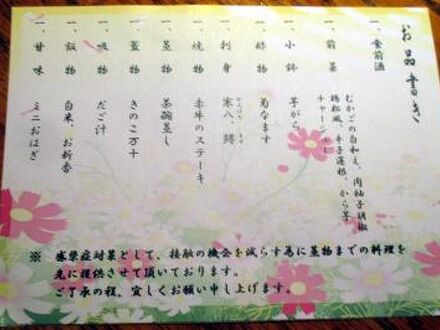 お品書き
一、食前酒
一、前菜
むかごの白和え、肉柚子胡椒
鶏松風、辛子蓮根、から芋
チャーシュー
一、小鉢 芋がら
一、酢物 菊なます
一、刺身 寒八、鱒
一、焼物 赤牛のステーキ
一、蒸物 茶碗蒸し
一、蓋物 きのこ万十
一、吸物 だご汁
一、飯物 白米、お新香
一、甘味 ミニおはぎ
※ 感染症対策として、接触の機会を減らす為に蒸物までの料理を
先に提供させて頂いております。
ご了承の程、宜しくお願い申し上げます。